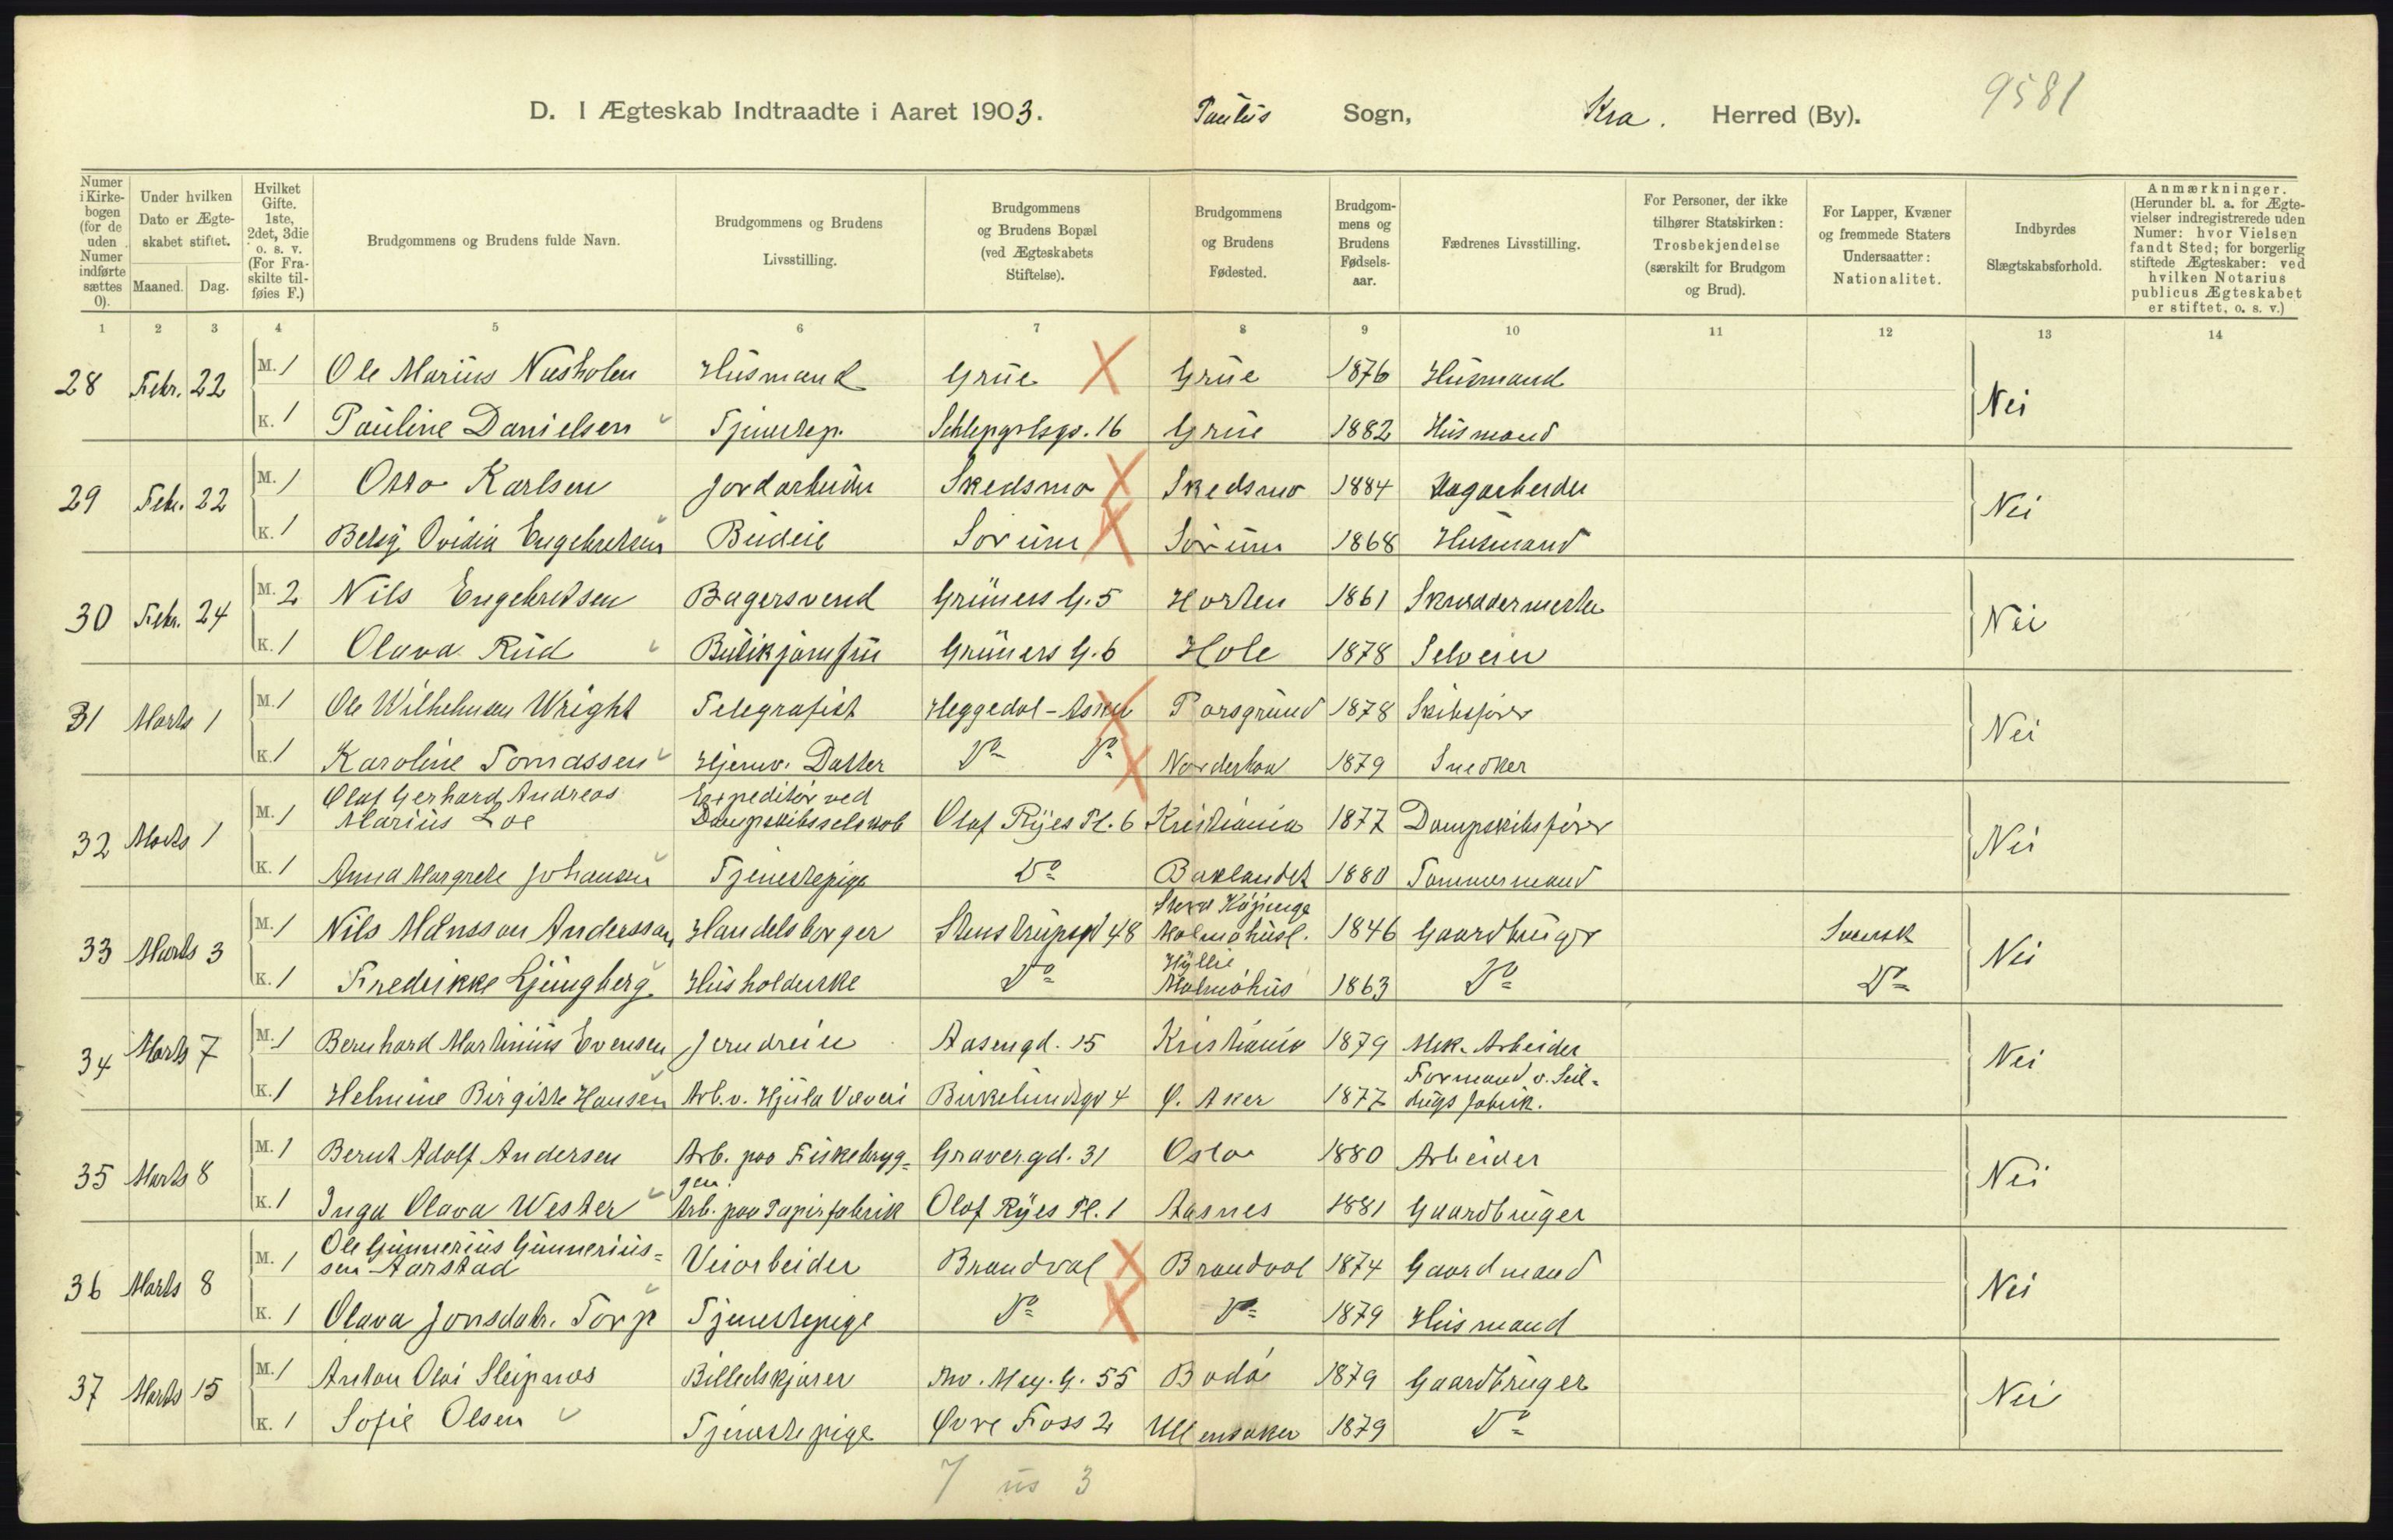 9581
D. I Ægteskab Indtraadte i Aaret 1903. Paulus Sogn, Kra. Herred (By).
Numer i Kirkebogen (for de uden Numer indførte sættes 0). | Under hvilken Dato er Ægteskabet stiftet. Maaned. Dag. | Hvilket Gifte. 1ste, 2det, 3die o. s. v. (For Fraskilte tilføies F.) | Brudgommens og Brudens fulde Navn. | Brudgommens og Brudens Livsstilling. | Brudgommens og Brudens Bopæl (ved Ægteskabets Stiftelse). | Brudgommens og Brudens Fødested. | Brudgommens og Brudens Fødselsaar. | Fædrenes Livsstilling. | For Personer, der ikke tilhører Statskirken: Trosbekjendelse (særskilt for Brudgom og Brud). | For Lapper, Kvæner og fremmede Staters Undersaatter: Nationalitet. | Indbyrdes Slægtskabsforhold. | Anmærkninger. (Herunder bl. a. for Ægtevielser indregistrerede uden Numer: hvor Vielsen fandt Sted; for borgerlig stiftede Ægteskaber: ved hvilken Notarius publicus Ægteskabet er stiftet, o. s. v.)
1 2 3 4 5 6 7 8 9 10 11 12 13 14
28 Febr. 22 M. 1 Ole Marius Næsholen Husmand Grue X Grue 1876 Husmand Nei
K. 1 Pauline Danielsen Tjenestep. Schlepgrlsgd. 16 Grue 1882 Husmand
29 Febr. 22 M. 1 Otto Karlsen Jordarbeider Skedsmo X Skedsmo 1884 Dagarbeider Nei
K. 1 Betsy Ovidia Engebretsen Budeie Sørum X Sørum 1868 Husmand
30 Febr. 24 M. 2 Nils Engebretsen Bagersvend Grüners G. 5 Horten 1861 Skræddermester Nei
K. 1 Olava Rud Butikjomfru Grüners G. 6 Hole 1878 Selveier
31 Marts 1 M. 1 Ole Wilhelmsen Wright Telegrafist Heggedal - Asker X Porsgrund 1878 Skibsfører Nei
K. 1 Karoline Tomassen Hjemv. Datter Do Do X Norderhov 1879 Snedker
32 Marts 1 M. 1 Olaf Gerhard Andreas Marius Loe Expeditør ved Dampskibsselskab Olaf Ryes Pl. 6 Kristiania 1877 Dampskibsfører Nei
K. 1 Anna Margrete Johansen Tjenestepige Do Baklandet 1880 Tømmermand
33 Marts 3 M. 1 Nils Månsson Andersson Handelsborger Stenstrupsgd 48 Stora Köpinge Malmöhusl. 1846 Gaardbruger Svensk Nei
K. 1 Fredrikke Ljungberg Husholderske Do Hyllie Malmöhus 1863 Do Do
34 Marts 7 M. 1 Bernhard Martinius Evensen Jerndreier Aasengd. 15 Kristiania 1879 Mek. Arbeider Nei
K. 1 Helmine Birgitte Hansen Arb. v. Hjula Væveri Birkelundsgd 4 Ø. Aker 1877 Formand v. Seildugsfabrik.
35 Marts 8 M. 1 Bernt Adolf Andersen Arb. paa Fiskebryggen. Gravergd. 31 Oslo 1880 Arbeider Nei
K. 1 Inga Olava Wester Arb. paa Papirfabrik Olaf Ryes Pl. 1 Aasnes 1881 Gaardbruger
36 Marts 8 M. 1 Ole Gunnerius Gunneriussen Aarstad Veiarbeider Brandval X Brandval 1874 Gaardmand Nei
K. 1 Olava Jonsdatr. Torp Tjenestepige Do X Do 1879 Husmand
37 Marts 15 M. 1 Anton Olai Sleipnæs Billedskjærer Thv. Mey. G. 55 Bodø 1879 Gaardbruger Nei
K. 1 Sofie Olsen Tjenestepige Øvre Foss 2 Ullensaker 1879 Do
7 us 3